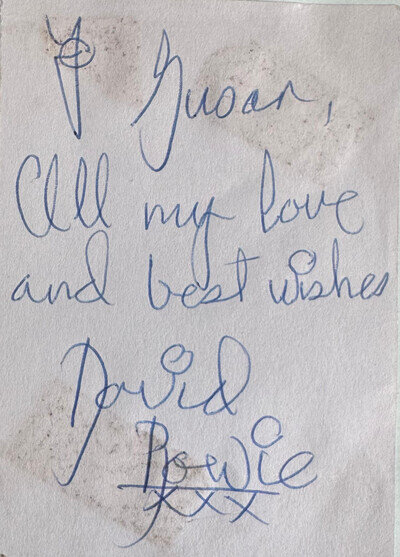 To Susan,
All my love
and best wishes
David
Bowie
xxx